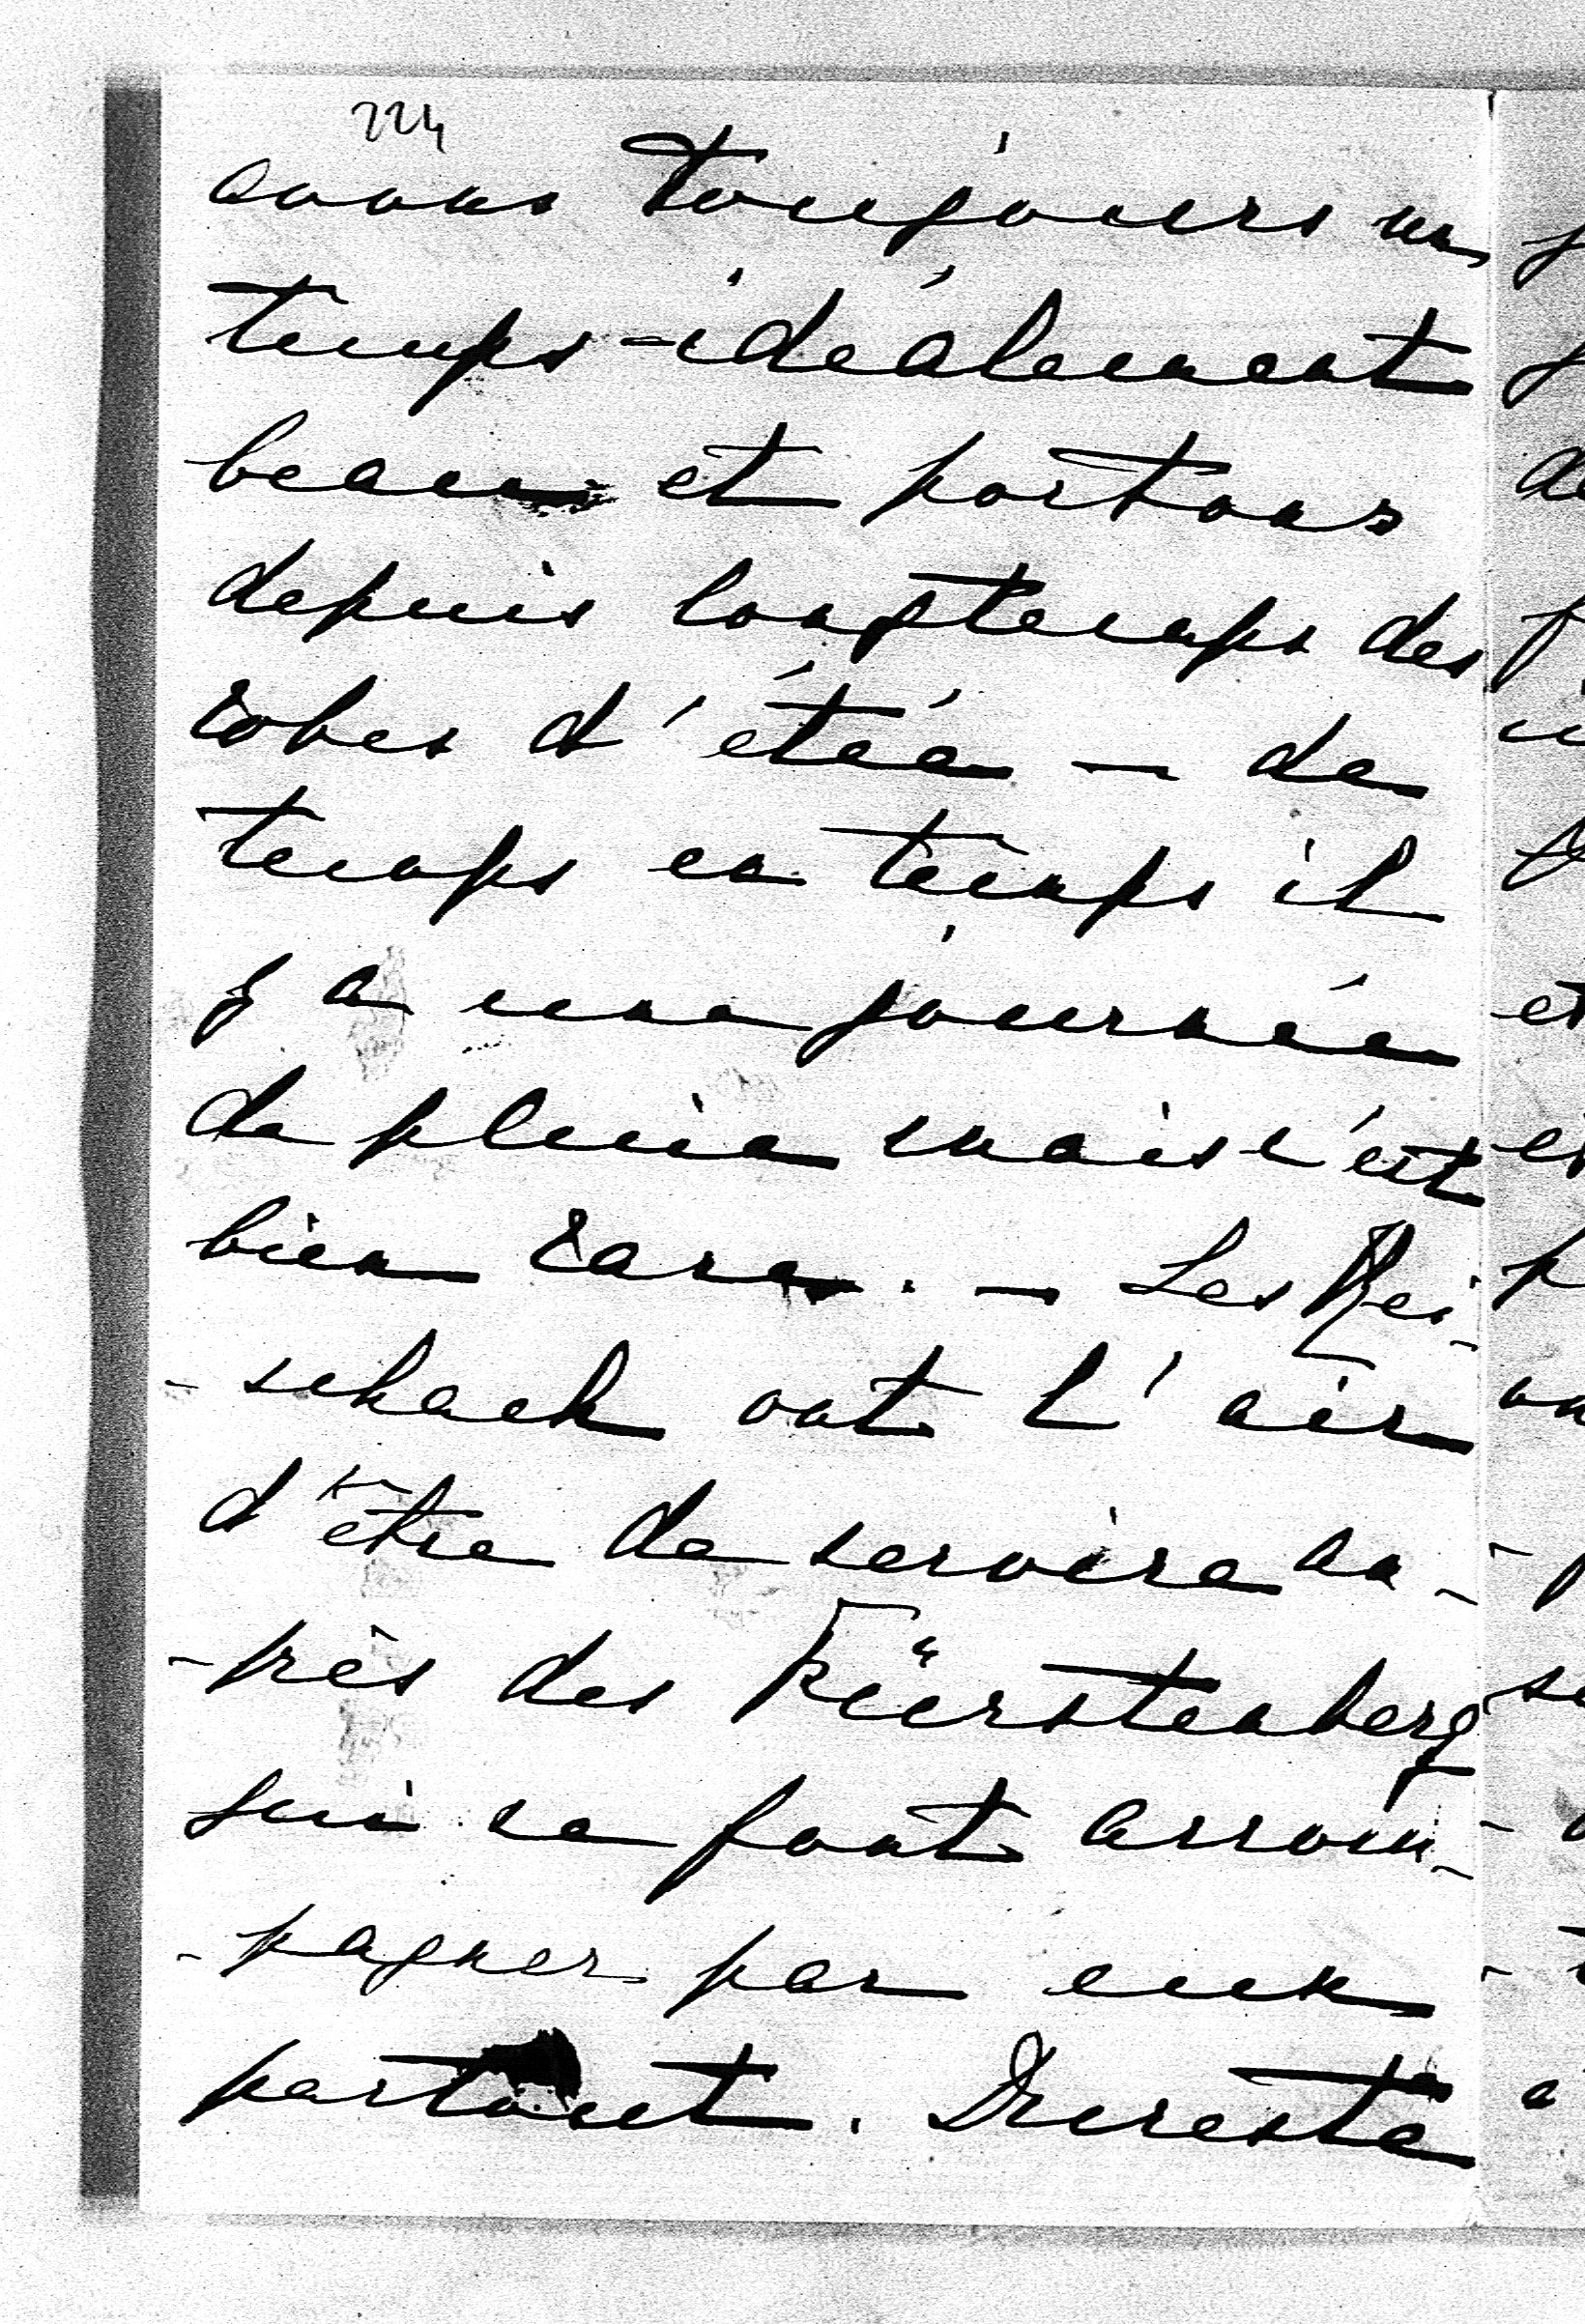 224
avons toujours un
temps-idéalement
beau et portons
depuis longtemps des
robes d'été — de
temps en temps il
y a une journée
de pluie mais c'est
bien rare. — Les Rei-
-schach ont l'air
d'être de service au-
-près des Fürstenberg
qui se font accom-
-pagner par eux
partout. Dureste